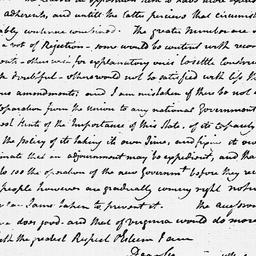 adherents, and untill the latter perceives that circumst
ably continue combined. The greater number are
a vote of Rejection — some would be content with reco
doubtful — others would not be satisfied with less th
ous amendments; and I am mistaken if there be not
separation from the Union to any national Government
of the Importance of this State, of its capacity
the policy of its taking its own Time, and
that an adjournment may be expedient, and tha
the operation of the new Government before they re
people however are gradually coming right notw
taken to prevent it. The accession
does good. and that of Virginia would do more
With the greatest Respect & Esteem I am
Dear Sir